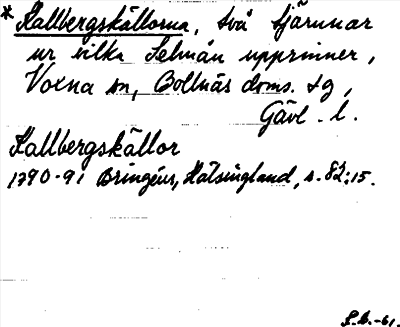 * Kallbergskällorna, två tjärnar
ur vilka Selmån upprinner,
Voxna sn, Bollnäs doms. tg,
Gävl. l.
Kallbergskällor
1790-91 Bringéus, Hälsingland, s. 82:15.
S.B.-61.